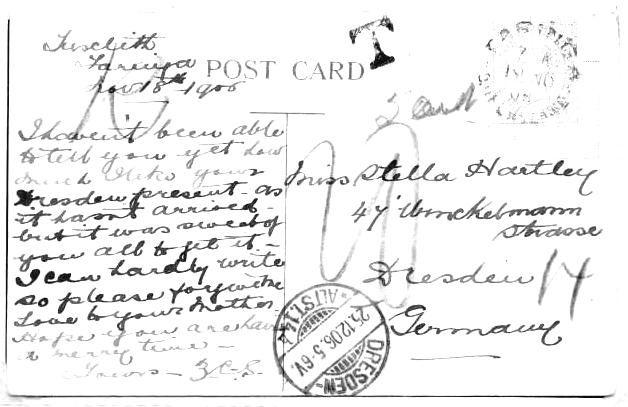 Taringa
Nov 18th 1906
I haven't been able
to tell you yet how
much I like your
Dresden present - as
it hasn't arrived -
but it was sweet of
you all to get it -
I can hardly write
so please forgive me
Love to your Mother
Hope you are having
a merry time -
Yours -
POST CARD
T
Miss Stella Hartley
47 Winckelmann
Strasse
Dresden 14
Germany
TARINGA
DRESDEN - ALTST. 14
25.12.06. 5-6V.